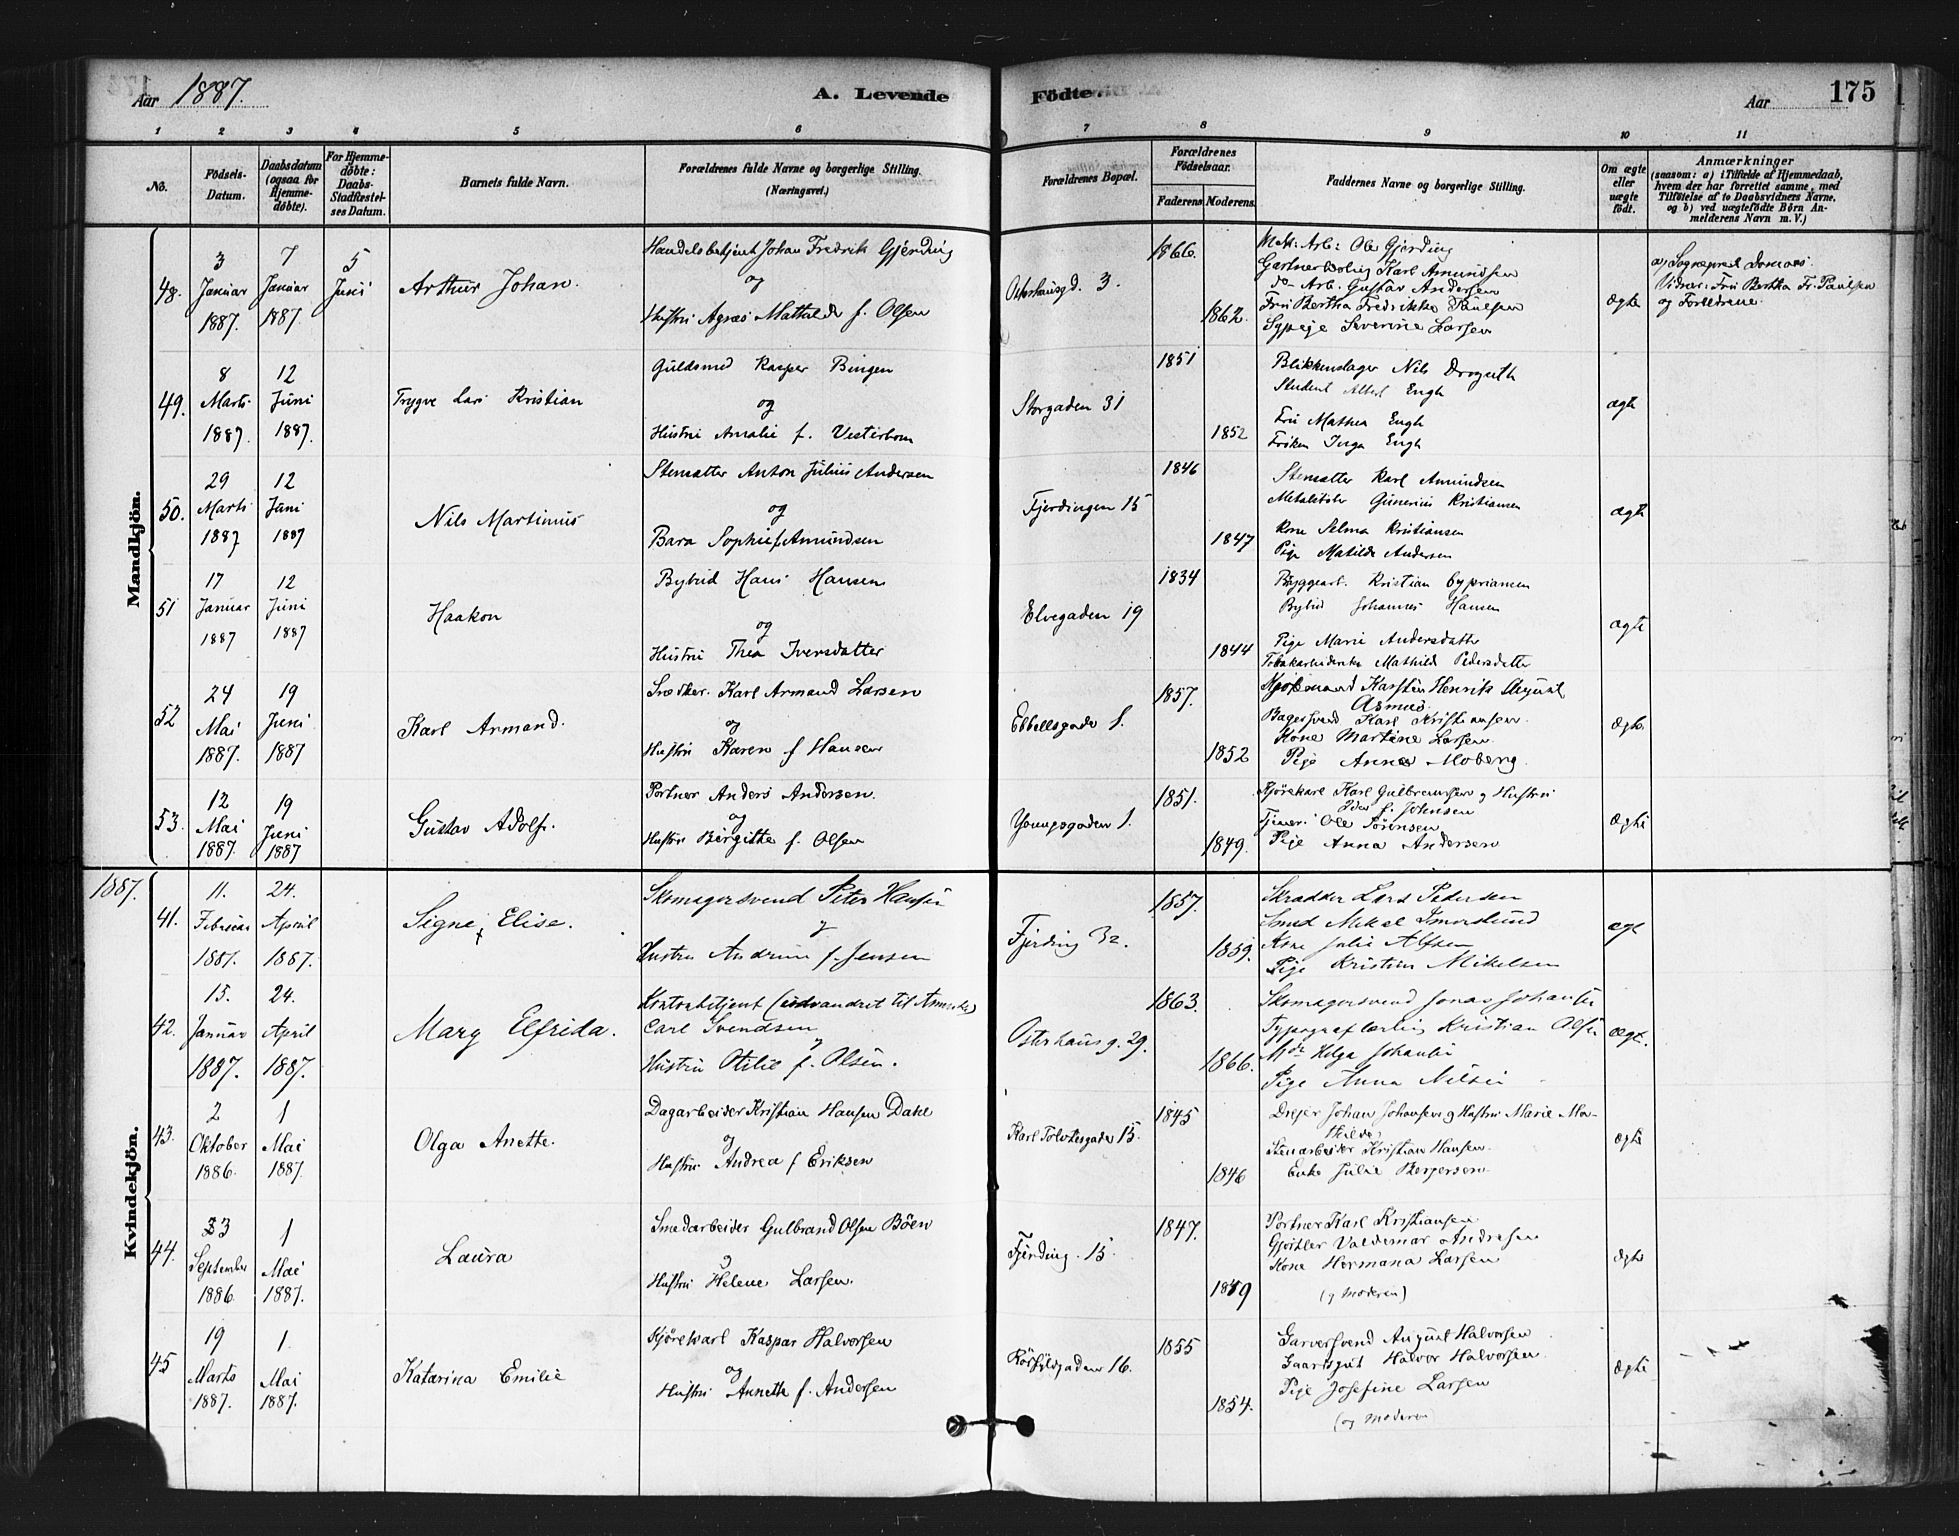 Aar 1887.
A. Levende Födte.
Aar 175
1 2 3 4 5 6 7 8 9 10 11
No.
Födsels-Datum.
Daabsdatum (ogsaa for Hjemme-döbte).
For Hjemme-döbte: Daabs-Stadfæstel-ses Datum.
Barnets fulde Navn.
Forældrenes fulde Navne og borgerlige Stilling.
(Næringsvei.)
Forældrenes Bopæl.
Forældrenes Födselsaar.
Faderens Moderens
Faddernes Navne og borgerlige Stilling.
Om ægte eller uægte födt.
Anmærkninger
(saasom: a) i Tilfælde af Hjemmedaab, hvem der har forrettet samme, med Tilföielse af to Daabsvidners Navne, og b) ved uægtefödte Börn An-melderens Navn m. V.)
Mandkjön.
48. 3 Januar 1887. 7 Januar 1887. 5 Juni
Arthur Johan.
Handelsbetjent Johan Fredrik Gjerding
og
Hustru Agnes Mathilde f. Olsen
Osterhausgd. 3.
1866.
1862.
Arb: Ole Gjerding
Gartner Karl Amundsen
do Arb. Gustav Andersen
Fru Bertha Fredrikke Paulsen
Sypige Severine Larsen
ægte
a) Sogneprest
Vidner: Fru Bertha Fr. Paulsen
og Forældrene.
49. 8 Marts 1887. 12 Juni 1887.
Trygve Lars Kristian
Guldsmed Kasper Bingen
og
Hustru Amalie f. Vesterbom
Storgaden 31
1851
1852
Blikkenslager Nils
Student Albert Engh
Fru Mathea Engh
Frøken Inga Engh
ægte
50. 29 Marts 1887 12 Juni 1887
Nils Martinius
Stensætter Anton Julius Andersen
og
Bara Sophie f. Amundsen
Fjerdingen 15
1846
1847
Stensætter Karl Amundsen
Gunerius Kristiansen
Kone Selma Kristiansen
Pige Matilde Andersen
ægte
51 17 Januar 1887 12 Juni 1887
Haakon
Bybud Hans Hansen
og
Hustru Thea Iversdatter
Elvegaden 19
1834
1844
Byggearb. Kristian Cypriansen
Bybud Johannes Hansen
Pige Marie Andersdatter
Tobakarbiderske Mathilde Pedersdatter
ægte
52 24 Mai 1887. 19 Juni 1887
Karl Armand.
Snedker. Karl Armand Larsen
og
Hustru Karen f Hansen
Ebbellsgade 1.
1857.
1852
Karsten Henrik August
Asmus.
Bagersvend Karl Kristiansen.
Kone Martine Larsen.
Pige Anna Moberg.
ægte
53. 12 Mai 1887. 19 Juni 1887
Gustav Adolf.
Portner Anders Andersen.
og
Hustru Birgitte f. Olsen
Youngsgaden 1.
1851.
1849.
Kjørekarl Karl Gulbrandsen og Hustru
f. Johnsen
Tjener: Ole Sørensen
Pige Anna Andersen
ægte
Kvindekjön.
1887.
41. 11. Februar 1887. 24. April 1887.
Signe Elise.
Skomagersvend Peter Hansen
og
Hustru Andrine f. Jensen
Fjerding 32.
1857.
1859.
Skrædder Lars Pedersen
Smed Mikal Smorslund
Kone Julie Alfsen
Pige Kristine Mikelsen
ægt
42. 15. Januar 1887. 24. April 1887.
Mary Elfrida.
Kontorbetjent (udvandret til Amerika)
Carl Svendsen
og
Hustru Otilie f. Olsen.
Osterhausg. 29.
1863.
1866.
Skomagersvend Jonas Johansen
Typograflærling Kristian Olsen
Helga Johansen
Pige Anna Nilsen
ægt.
43. 2 Oktober 1886. 1 Mai 1887.
Olga Anette.
Dagarbeider Kristian Hansen Dahl
og
Hustru Andrea f Eriksen
Karl Tolvtesgade 15.
1845
1846
Drejer Johan Johansen og Hustru Marie Ma-
thilde,
Stenarbeider Kristian Hansen.
Enke Julie Bergersen.
ægte
44. 23 September 1886. 1 Mai 1887.
Laura
Smedarbeider Gulbrand Olsen Böen
og
Hustru Helene Larsen.
Fjerding. 15.
1847.
1849
Portner Karl Kristiansen
Gjørtler Valdemar Andresen
Kone Hermana Larsen
(og Moderen)
ægte
45 19 Marts 1887. 1. Mai 1887.
Katarina Emilie
Kjörekarl Kaspar Halvorsen
og
Hustru Annette f. Andersen
16.
1855
1854.
Garversvend August Halvorsen
Gaardsgut Halvor Halvorsen.
Pige Josefine Larsen
(og Moderen)
ægte